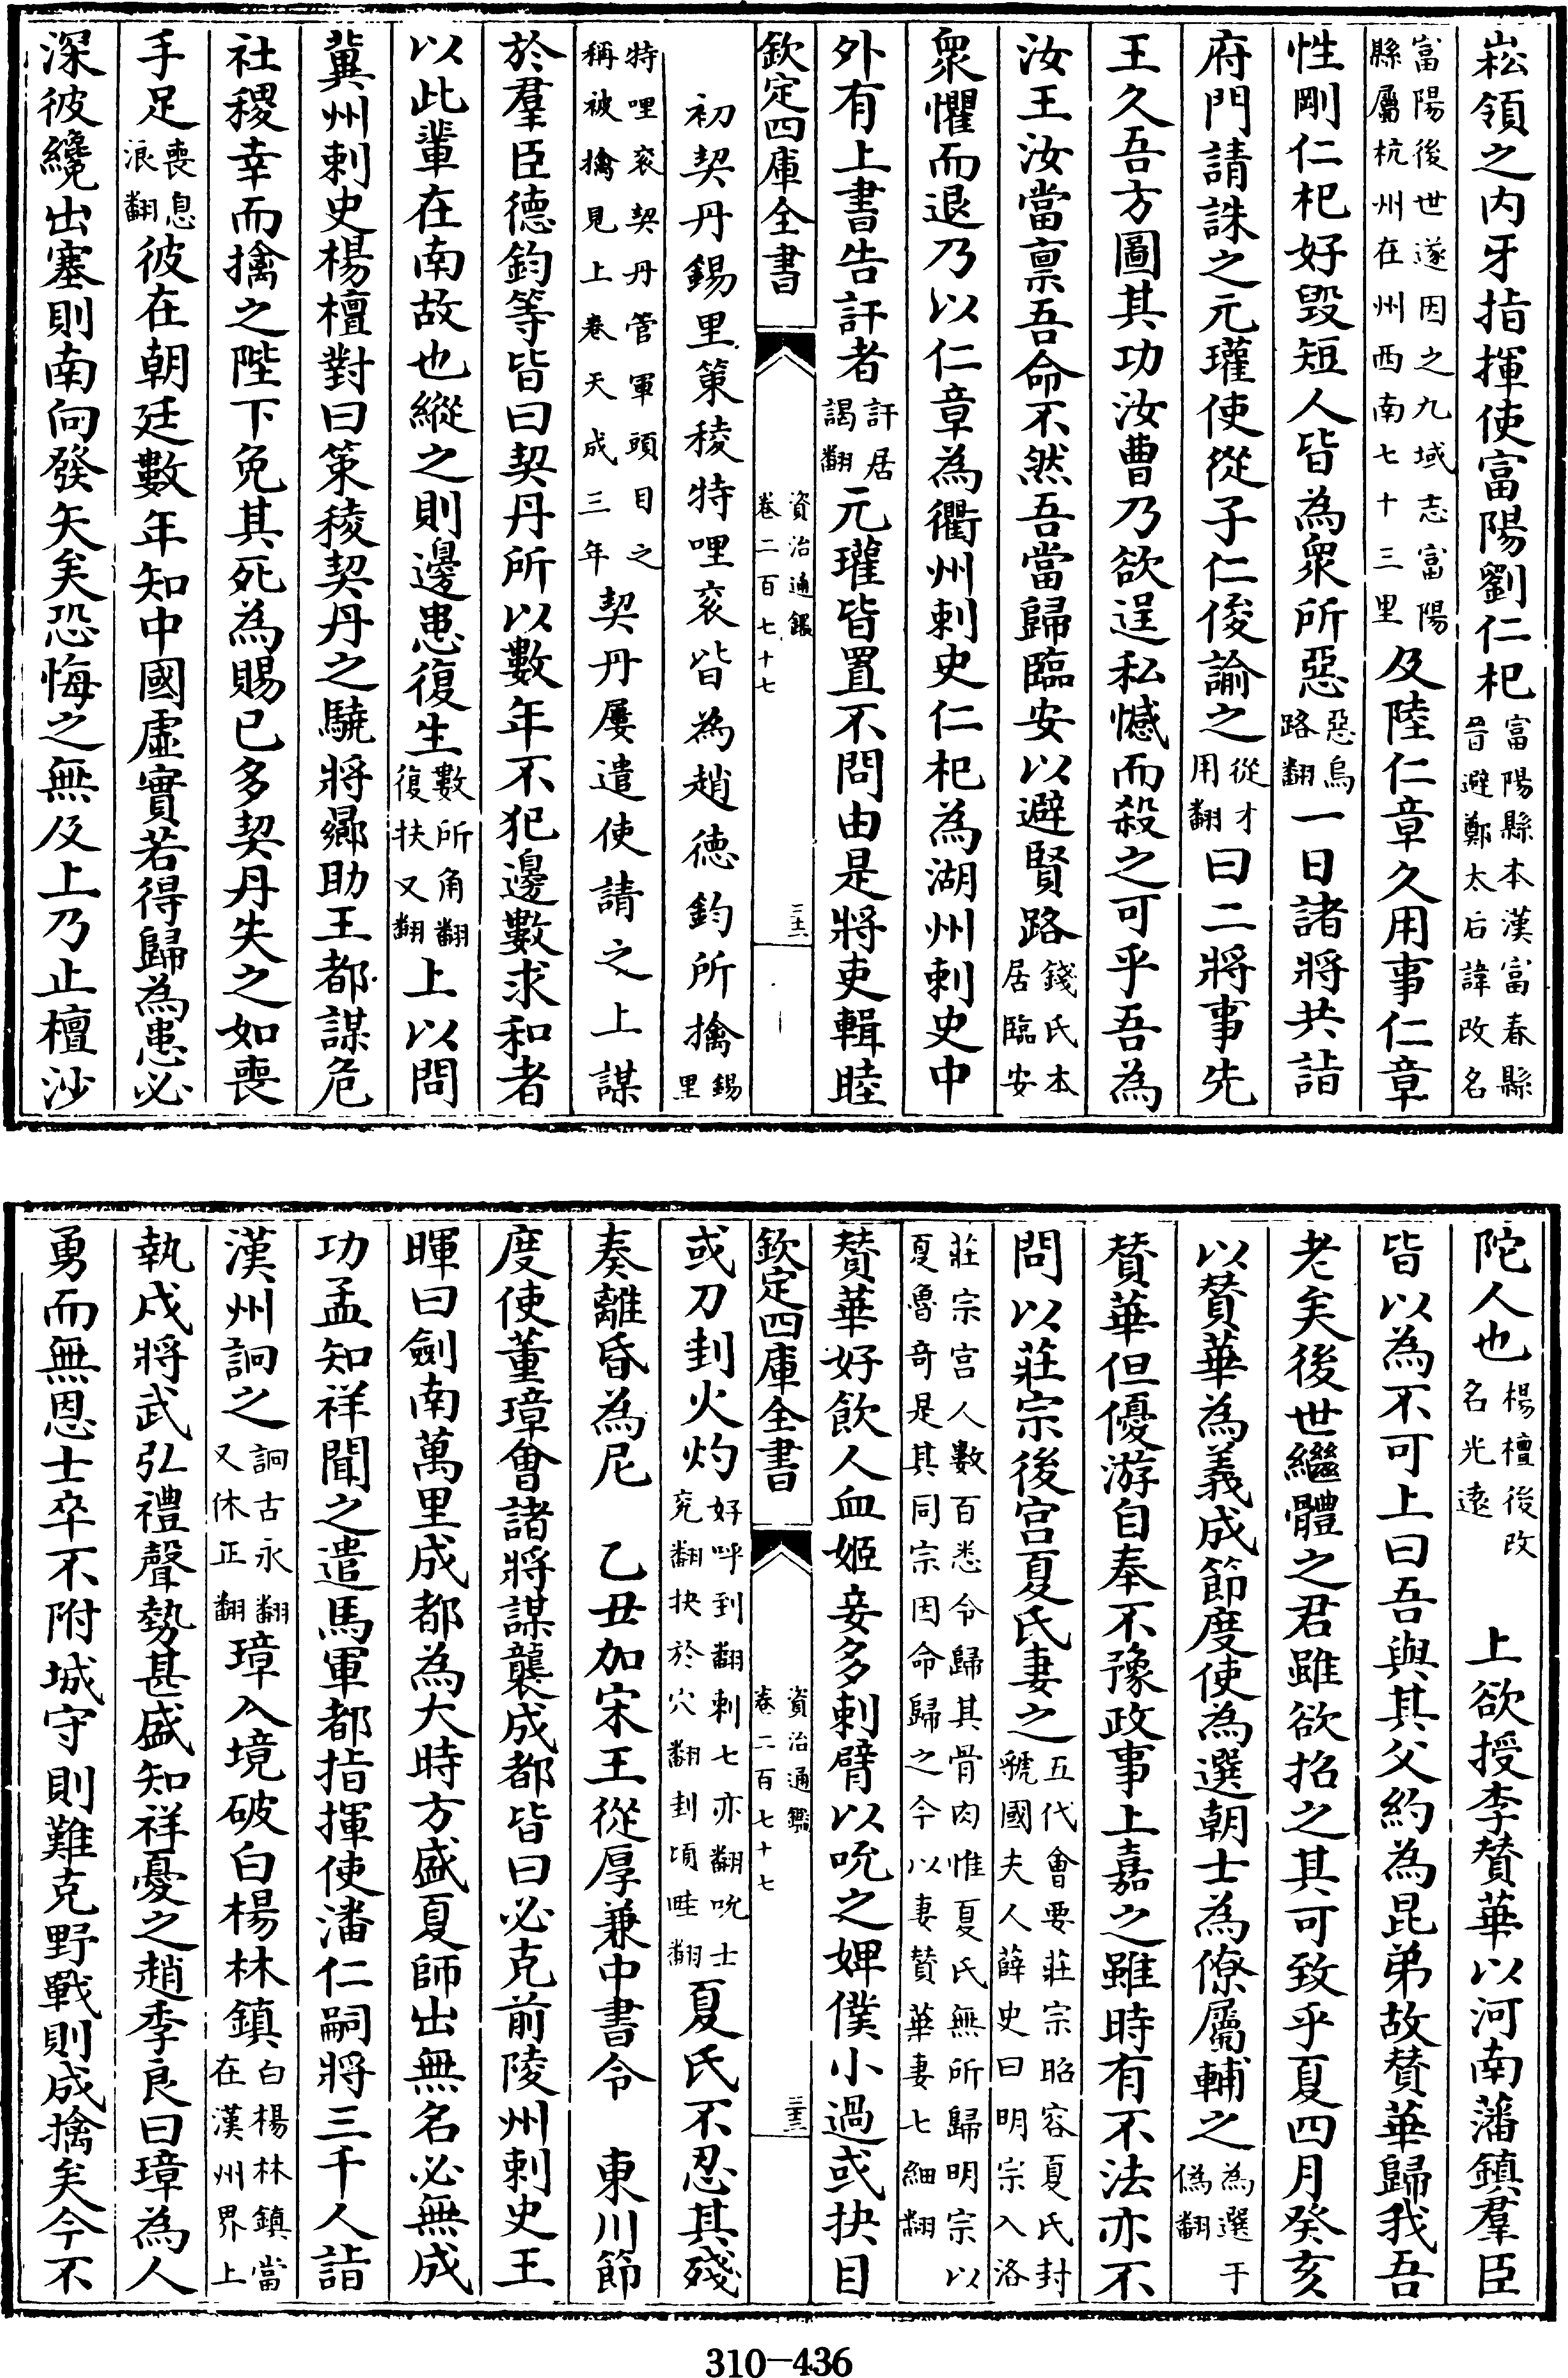 崧領之内牙指揮使富陽劉仁杞富陽縣本漢富春縣晉避鄭太后諱改名
富陽後世遂因之九域志富陽縣屬杭州在州西南七十三里及陸仁章久用事仁章
性剛仁杞好毁短人皆為衆所惡惡烏路翻一日諸將共詣
府門請誅之元瓘使從子仁俊諭之從才用翻曰二將事先
王久吾方圖其功汝曹乃欲逞私憾而殺之可乎吾為
汝王汝當禀吾命不然吾當歸臨安以避賢路錢氏本居臨安
衆懼而退乃以仁章為衢州刺史仁杞為湖州刺史中
外有上書告訐者訐居謁翻元瓘皆置不問由是將吏輯睦
欽定四庫全書 資治通鑑卷二百七十七 三十六
初契丹錫里策稜特哩衮皆為趙德鈞所擒錫里
特哩衮契丹管軍頭目之稱被擒見上卷天成三年契丹屢遣使請之上謀
於羣臣德鈞等皆曰契丹所以數年不犯邊數求和者
以此輩在南故也縱之則邊患復生數所角翻復扶又翻上以問
冀州刺史楊檀對曰策稜契丹之驍將曏助王都謀危
社稷幸而擒之陛下免其死為賜已多契丹失之如喪
手足喪息浪翻彼在朝廷數年知中國虛實若得歸為患必
深彼纔出塞則南向發矢矣恐悔之無及上乃止檀沙
陀人也楊檀後改名光遠 上欲授李贊華以河南藩鎮羣臣
皆以為不可上曰吾與其父約為昆弟故贊華歸我吾
老矣後世繼體之君雖欲招之其可致乎夏四月癸亥
以贊華為義成節度使為選朝士為僚屬輔之為選于偽翻
贊華但優游自奉不豫政事上嘉之雖時有不法亦不
問以莊宗後宫夏氏妻之五代會要莊宗昭容夏氏封虢國夫人薛史曰明宗入洛
莊宗宫人數百悉令歸其骨肉惟夏氏無所歸明宗以夏魯奇是其同宗因命歸之今以妻贊華妻七細翻
贊華好飲人血姬妾多刺臂以吮之婢僕小過或抉目
欽定四庫全書 資治通鑑卷二百七十七 三十三
或刀刲火灼好呼到翻刺七亦翻吮士兖翻抉於穴翻刲頃畦翻夏氏不忍其殘
奏離昏為尼 乙丑加宋王從厚兼中書令 東川節
度使董璋會諸將謀襲成都皆曰必克前陵州刺史王
暉曰劍南萬里成都為大時方盛夏師出無名必無成
功孟知祥聞之遣馬軍都指揮使潘仁嗣將三千人詣
漢州詗之詗古永翻又休正翻璋入境破白楊林鎮白楊林鎮當在漢州界上
執戍將武弘禮聲勢甚盛知祥憂之趙季良曰璋為人
勇而無恩士卒不附城守則難克野戰則成擒矣今不
310-436